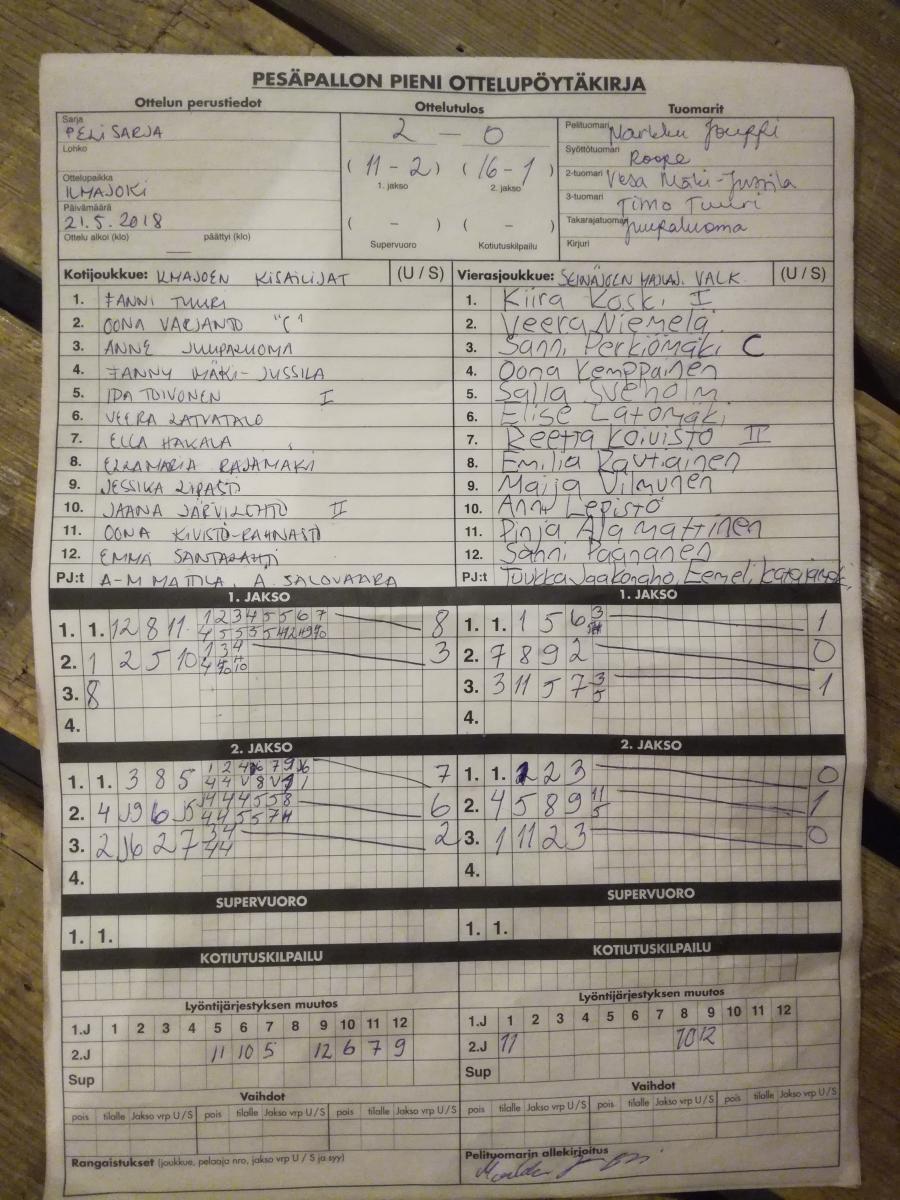 PESÄPALLON PIENI OTTELUPÖYTÄKIRJA
Ottelun perustiedot
Ottelutulos
Tuomarit
Sarja
PELISARJA
Lohko
Ottelupaikka
ILMAJOKI
Päivämäärä
21.5.2018
Ottelu alkoi (klo) päättyi (klo)
2 – 0
( 11 - 2 ) ( 16 - 1 )
1. jakso 2. jakso
( - ) ( - )
Supervuoro Kotiutuskilpailu
Pelituomari Markku Jouppi
Syöttötuomari Roope
2-tuomari Vesa Mäki-Jussila
3-tuomari Timo Tuuri
Takarajatuomari Juupaluoma
Kirjuri
Kotijoukkue: ILMAJOEN KISAILIJAT (U / S)
1. FANNI TUURI
2. OONA VARJANTO "C"
3. ANNE JUUPALUOMA
4. FANNY MÄKI-JUSSILA
5. IDA TOIVONEN I
6. VEERA LATVATALO
7. ELLA HAKALA
8. ELLAMARIA RAJAMÄKI
9. JESSIKA LIPASTI
10. JAANA JÄRVILEHTO II
11. OONA KIVISTÖ-RAHNASTO
12. EMMA SANTALAHTI
PJ:t A-M MATTILA, A. SALOVAARA
Vierasjoukkue: SEINÄJOEN MAILAJ. VALK. (U / S)
1. Kiira Koski I
2. Veera Niemelä
3. Sanni Perkiömäki C
4. Oona Kemppainen
5. Salla Sveholm
6. Elise Latomäki
7. Reetta Koivisto II
8. Emilia Rautiainen
9. Maija Vilmunen
10. Anni Lepistö
11. Pinja Ala mattinen
12. Sanni Paananen
PJ:t Tuukka Jaakonaho, Eemeli
1. JAKSO
1. 1. 12 8 11 1 2 3 4 5 5 6 7 8
2. 1 2 5 10 1 3 4 3
3. 8
4.
1. JAKSO
1. 1. 1 5 6 3 1
2. 7 8 9 2 0
3. 3 11 5 7 3 5 1
4.
2. JAKSO
1. 1. 3 8 5 7
2. 4 9 6 5 4 4 4 5 5 8 6
4 4 5 5 7
3. 2 6 2 7 3 4 2
4 4
4.
2. JAKSO
1. 1. 2 3 0
2. 4 5 8 9 11 5 1
3. 1 11 2 3 0
4.
SUPERVUORO
1. 1.
SUPERVUORO
1. 1.
KOTIUTUSKILPAILU
KOTIUTUSKILPAILU
Lyöntijärjestyksen muutos
1.J 1 2 3 4 5 6 7 8 9 10 11 12
2.J 11 10 5 12 6 7 9
Sup
Lyöntijärjestyksen muutos
1.J 1 2 3 4 5 6 7 8 9 10 11 12
2.J 11 10 12
Sup
Vaihdot
pois tilalle Jakso vrp U / S pois tilalle Jakso vrp U / S pois tilalle Jakso vrp U / S
Vaihdot
pois tilalle Jakso vrp U / S pois tilalle Jakso vrp U / S pois tilalle Jakso vrp U / S
Rangaistukset (joukkue, pelaaja nro, jakso vrp U / S ja syy)
Pelituomarin allekirjoitus